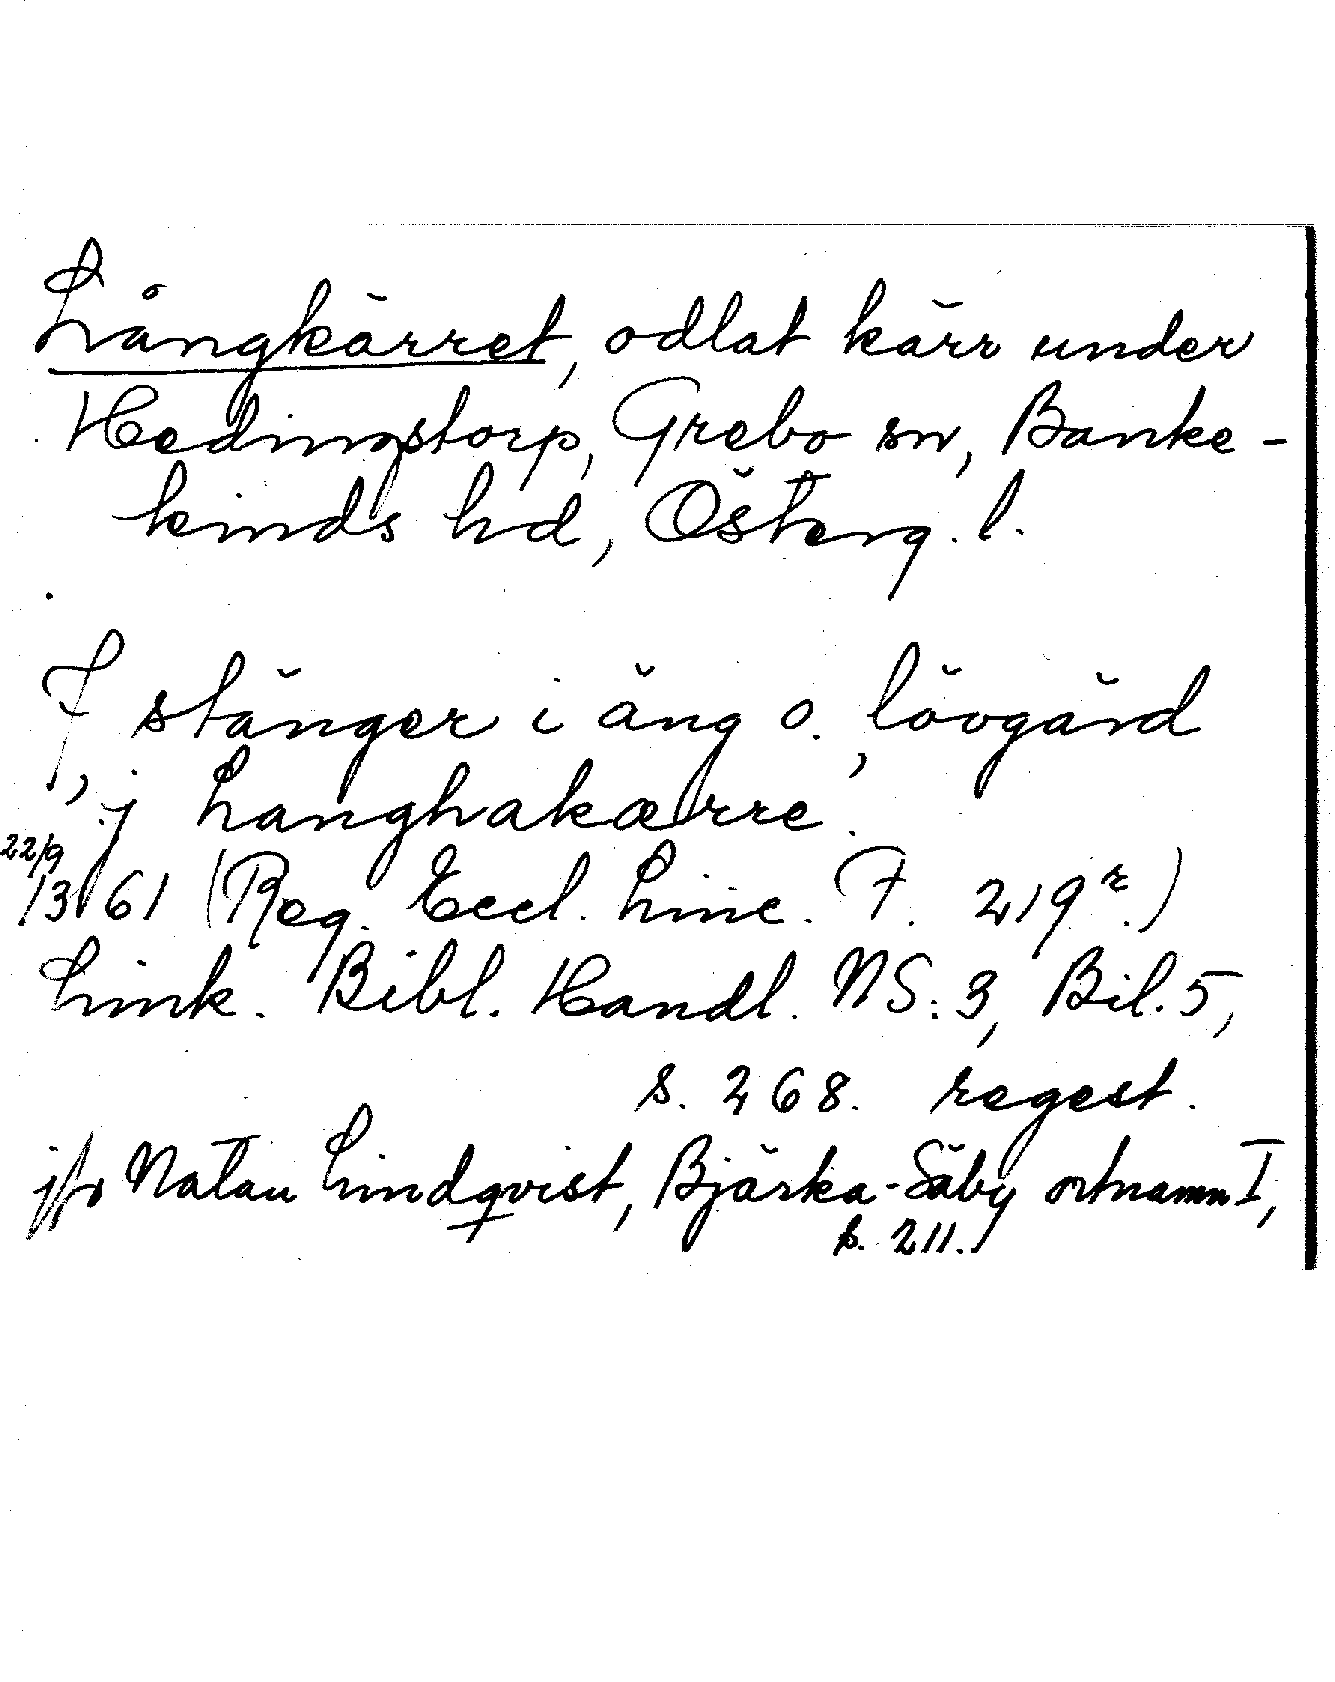 Långkärret, odlat kärr under
Hedingstorp, Grebo sn, Banke-
kinds hd, Österg. l.
7 stänger i äng o. lövgärd
, j Langhakærre.
22/9
1361 (Reg. Eccl. Linc. F. 219r.)
Link. Bibl. Handl. NS: 3, Bil. 5,
s. 268. regest.
jfr Natan Lindqvist, Bjärka-Säby ortnamn I,
s. 211.